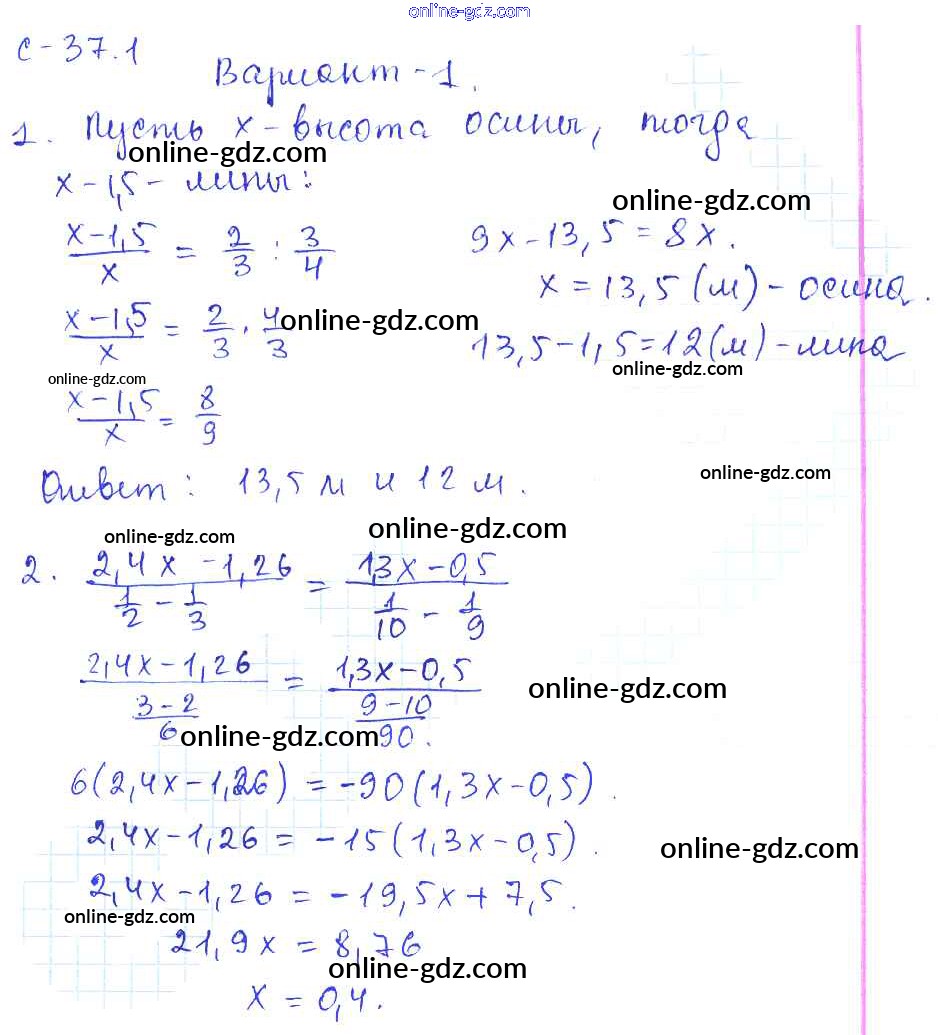 online-gdz.com
С-37.1
Вариант-1.
1. Пусть x-высота осины, тогда
online-gdz.com
x-1,5 - липы:
online-gdz.com
(x-1,5)/x = 2/3 : 3/4
9x-13,5=8x.
x=13,5(м)-осина.
(x-1,5)/x = 2/3 · 4/3
online-gdz.com
13,5-1,5=12(м)-липа
online-gdz.com
online-gdz.com
(x-1,5)/x = 8/9
Ответ: 13,5 м и 12 м.
online-gdz.com
online-gdz.com
online-gdz.com
2. (2,4x-1,26)/(1/2 - 1/3) = (1,3x-0,5)/(1/10 - 1/9)
(2,4x-1,26)/((3-2)/6) = (1,3x-0,5)/((9-10)/90).
online-gdz.com
online-gdz.com
6(2,4x-1,26) = -90(1,3x-0,5).
2,4x-1,26 = -15(1,3x-0,5).
online-gdz.com
2,4x-1,26 = -19,5x+7,5.
online-gdz.com
21,9x = 8,76
online-gdz.com
x = 0,4.